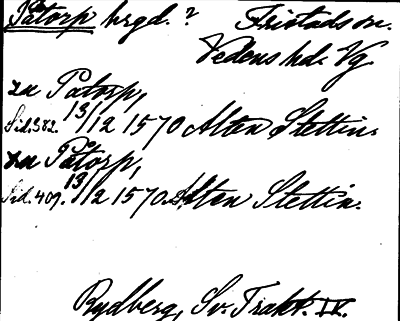 Påtorp hrgd. ? Fristads sn.
Vedens hd. Vg.
zu Patorp,
Sid. 382. 13/12 1570 Alten Stettin.
zu Påtorp,
Sid. 409. 13/12 1570. Alten Stettin.
Rydberg, Sv. Trakt. IV.